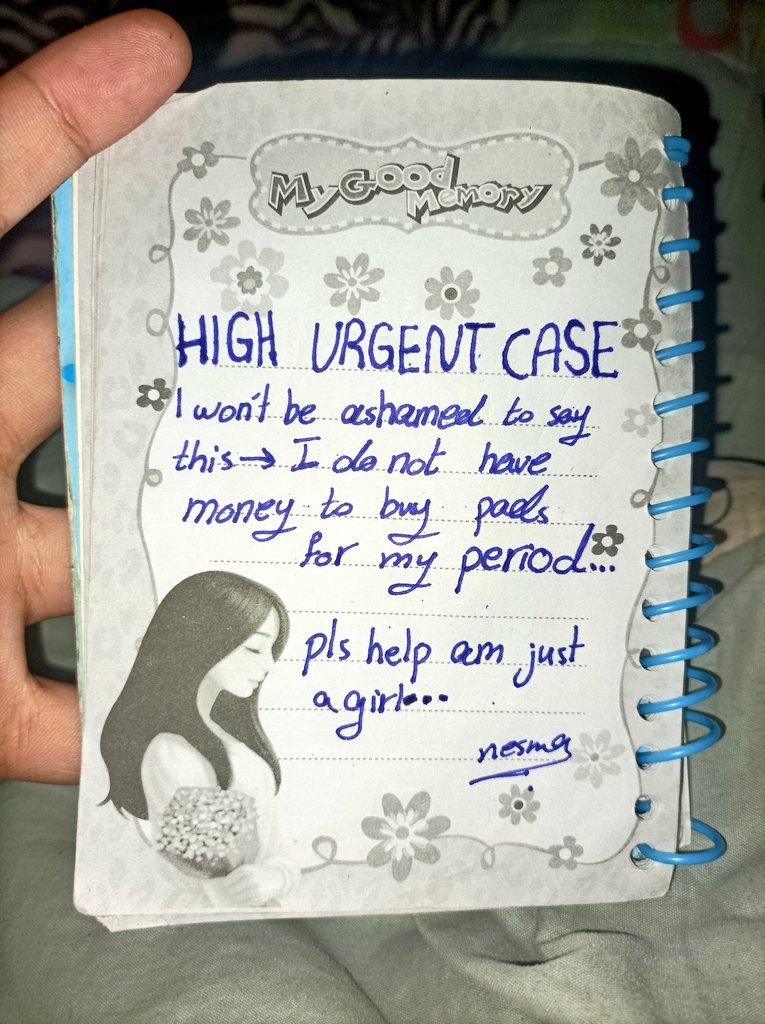 My Good Memory
HIGH URGENT CASE
I won't be ashamed to say
this → I do not have
money to buy pads
for my period...
pls help am just
a girl...
nesma